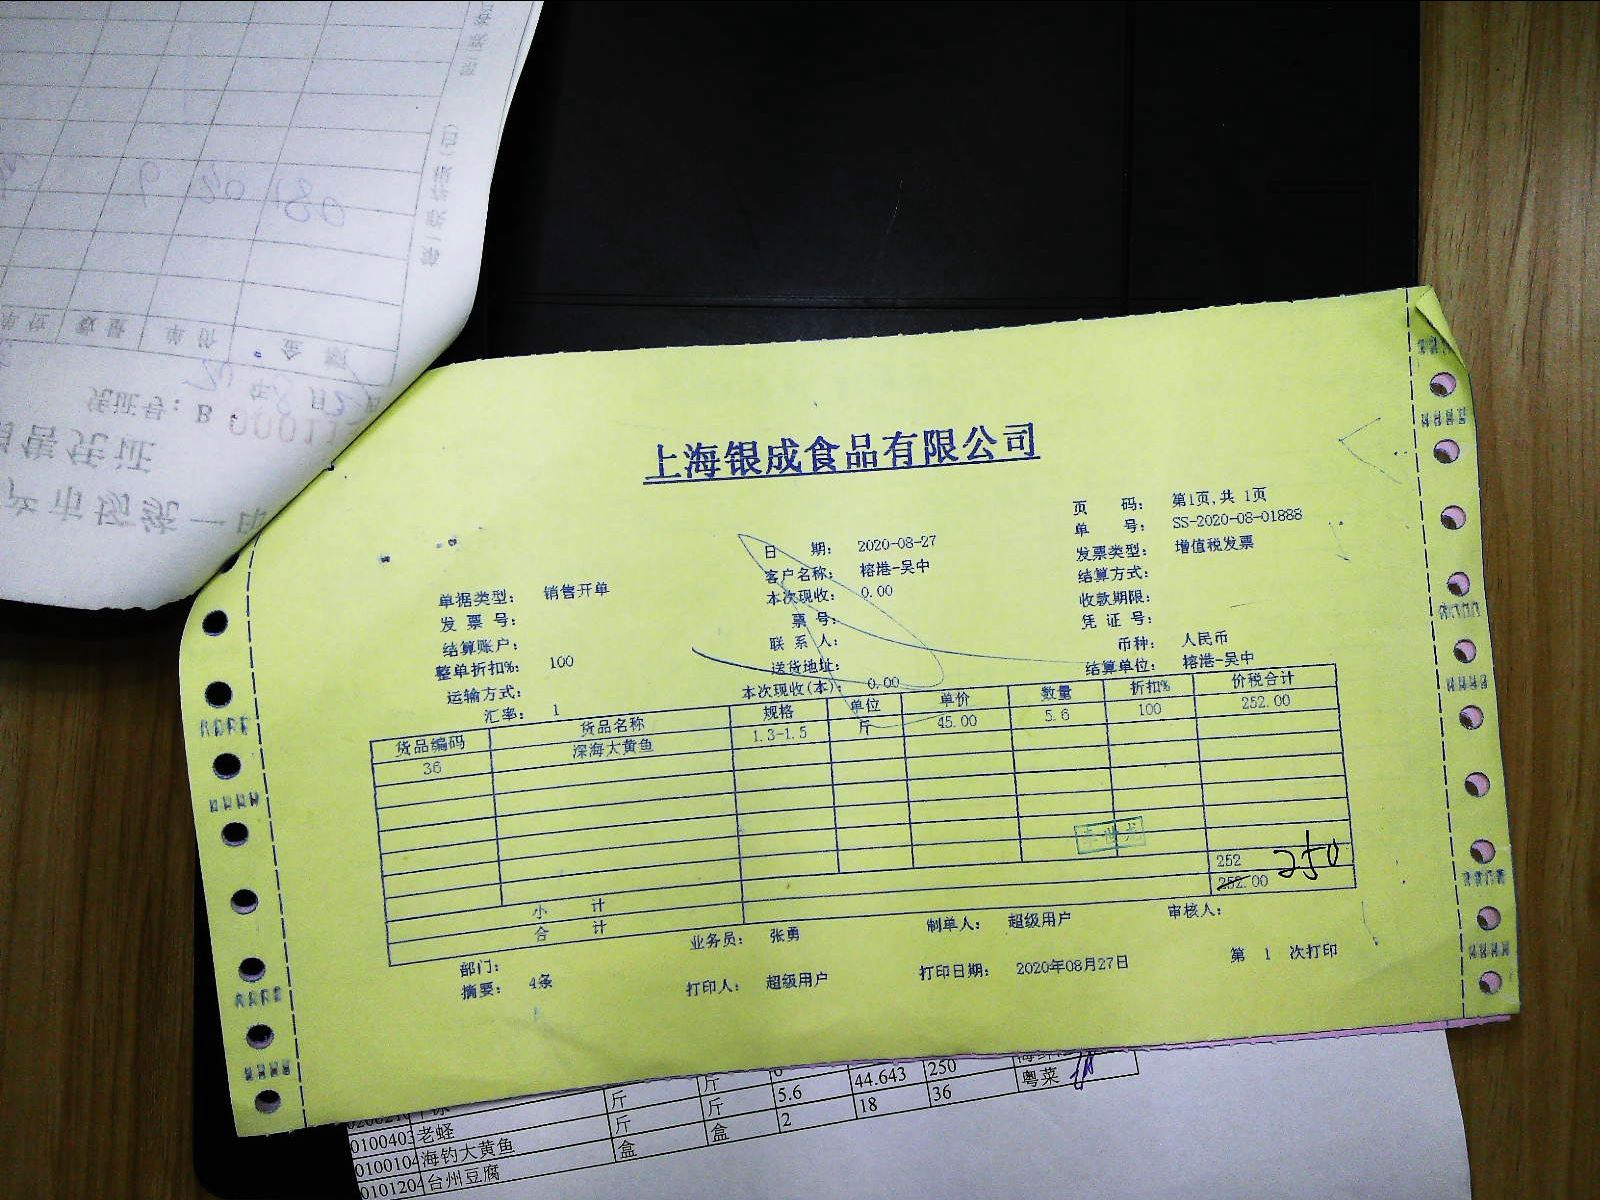 上海银成食品有限公司
页 码： 第1页,共 1页
单 号： SS-2020-08-01888
日 期： 2020-08-27 发票类型： 增值税发票
单据类型： 销售开单 客户名称： 榕港-吴中 结算方式：
发 票 号： 本次现收： 0.00 收款期限：
结算账户： 票 号： 凭 证 号：
整单折扣%： 100 联 系 人： 币种： 人民币
运输方式： 送货地址： 结算单位： 榕港-吴中
汇率： 1 本次现收(本)： 0.00
货品编码 货品名称 规格 单位 单价 数量 折扣% 价税合计
36 深海大黄鱼 1.3-1.5 斤 45.00 5.6 100 252.00
小 计 252
合 计 252.00 250
部门： 业务员： 张勇 制单人： 超级用户 审核人：
摘要： 4条 打印人： 超级用户 打印日期： 2020年08月27日 第 1 次打印
斤 斤 44.643 250
0100403 老蛏 斤 斤 5.6 18 36 粤菜
0100104 海钓大黄鱼 斤 盒 2
0101204 台州豆腐 盒
凭证号：B
年8月
金 额
单 价
数 量
6 30 180